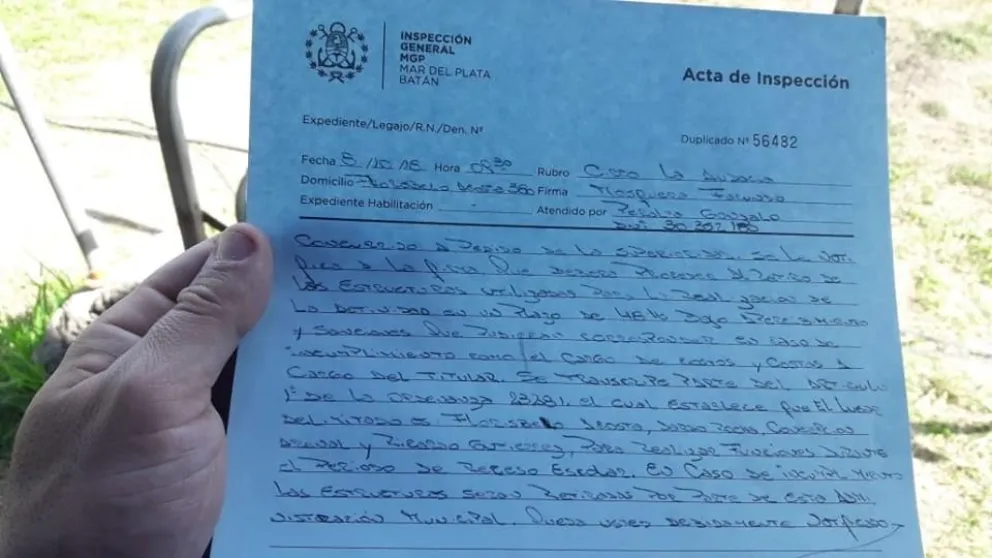 INSPECCIÓN
GENERAL
MGP
MAR DEL PLATA
BATÁN
Acta de Inspección
Expediente/Legajo/R.N./Den. Nº
Duplicado Nº 56482
Fecha 8/10/18 Hora 09:30 Rubro Circo La Audacia
Domicilio Acosta 300 Firma Mosquera
Expediente Habilitación Atendido por Peralta Gonzalo
DNI 30.267.180
Concurrido a pedido de la superioridad, se la noti
fica a la firma que debera proceder al retiro de
las estructuras utilizadas para la realización de
la actividad en un plazo de 48 hs bajo apercibimiento
y sanciones que pudieran corresponder en caso de
incumplimiento como el cargo de costos y costas a
cargo del titular. Se transcribe parte del articulo
1º de la ordenanza 23281, el cual establece que el lugar
delimitado es Florisbelo Acosta, Dardo Rocha,
y Ricardo Gutierrez, para realizar funciones durante
el periodo de receso escolar. En caso de incumplimiento
las estructuras seran retiradas por parte de esta admi
nistración municipal. Queda usted debidamente notificado